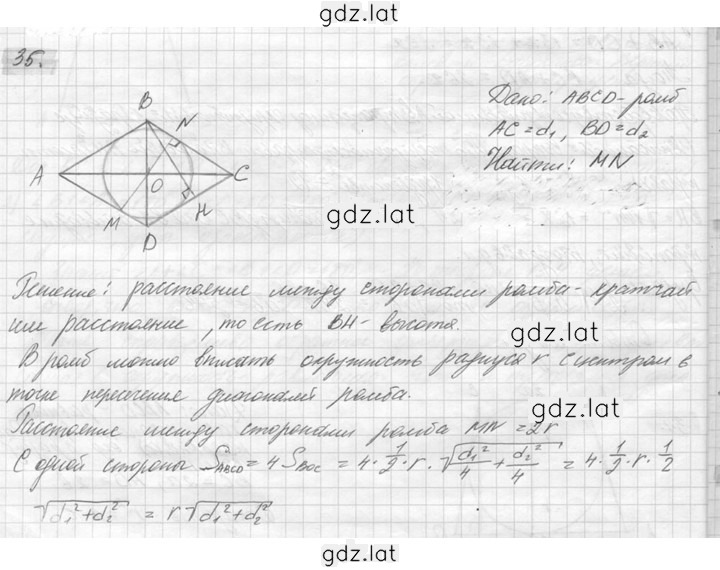 gdz.lat
35.
B
N
A
C
O
M
H
D
Дано: ABCD - ромб
AC = d₁, BD = d₂
Найти: MN
gdz.lat
Решение: расстояние между сторонами ромба - кратчай
шее расстояние, то есть BH - высота.
gdz.lat
В ромб можно вписать окружность радиуса r с центром в
точке пересечения диагоналей ромба.
gdz.lat
Расстояние между сторонами ромба MN = 2r
С одной стороны S_ABCD = 4 S_BOC = 4 · 1/2 · r · √(d₁²/4 + d₂²/4) = 4 · 1/2 · r · 1/2
√(d₁² + d₂²) = r √(d₁² + d₂²)
gdz.lat